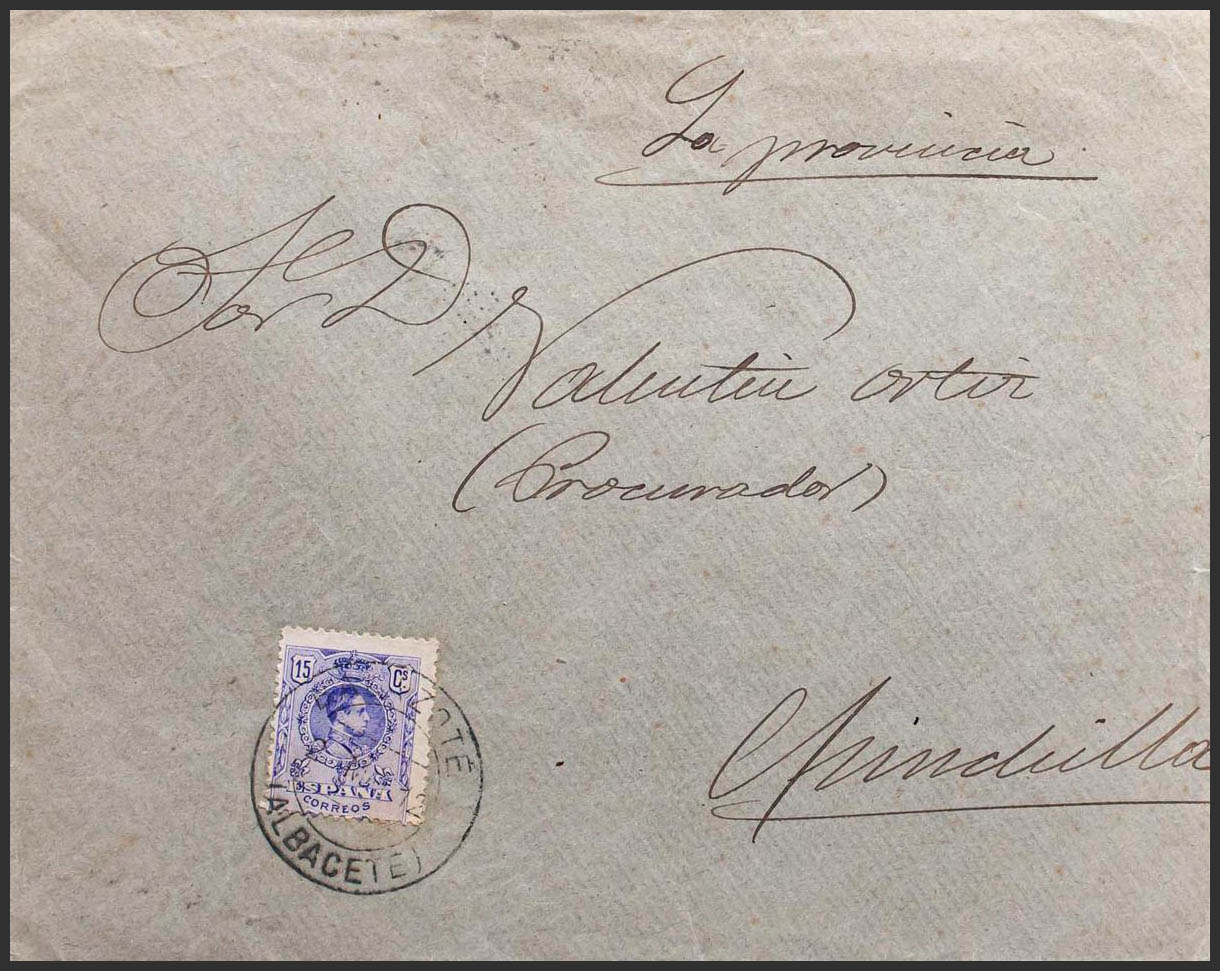 La provincia
Sor D
Valentin ortiz
(Procurador)
Chinchilla
15 Cs
ESPAÑA
CORREOS
OTE
(ALBACETE)